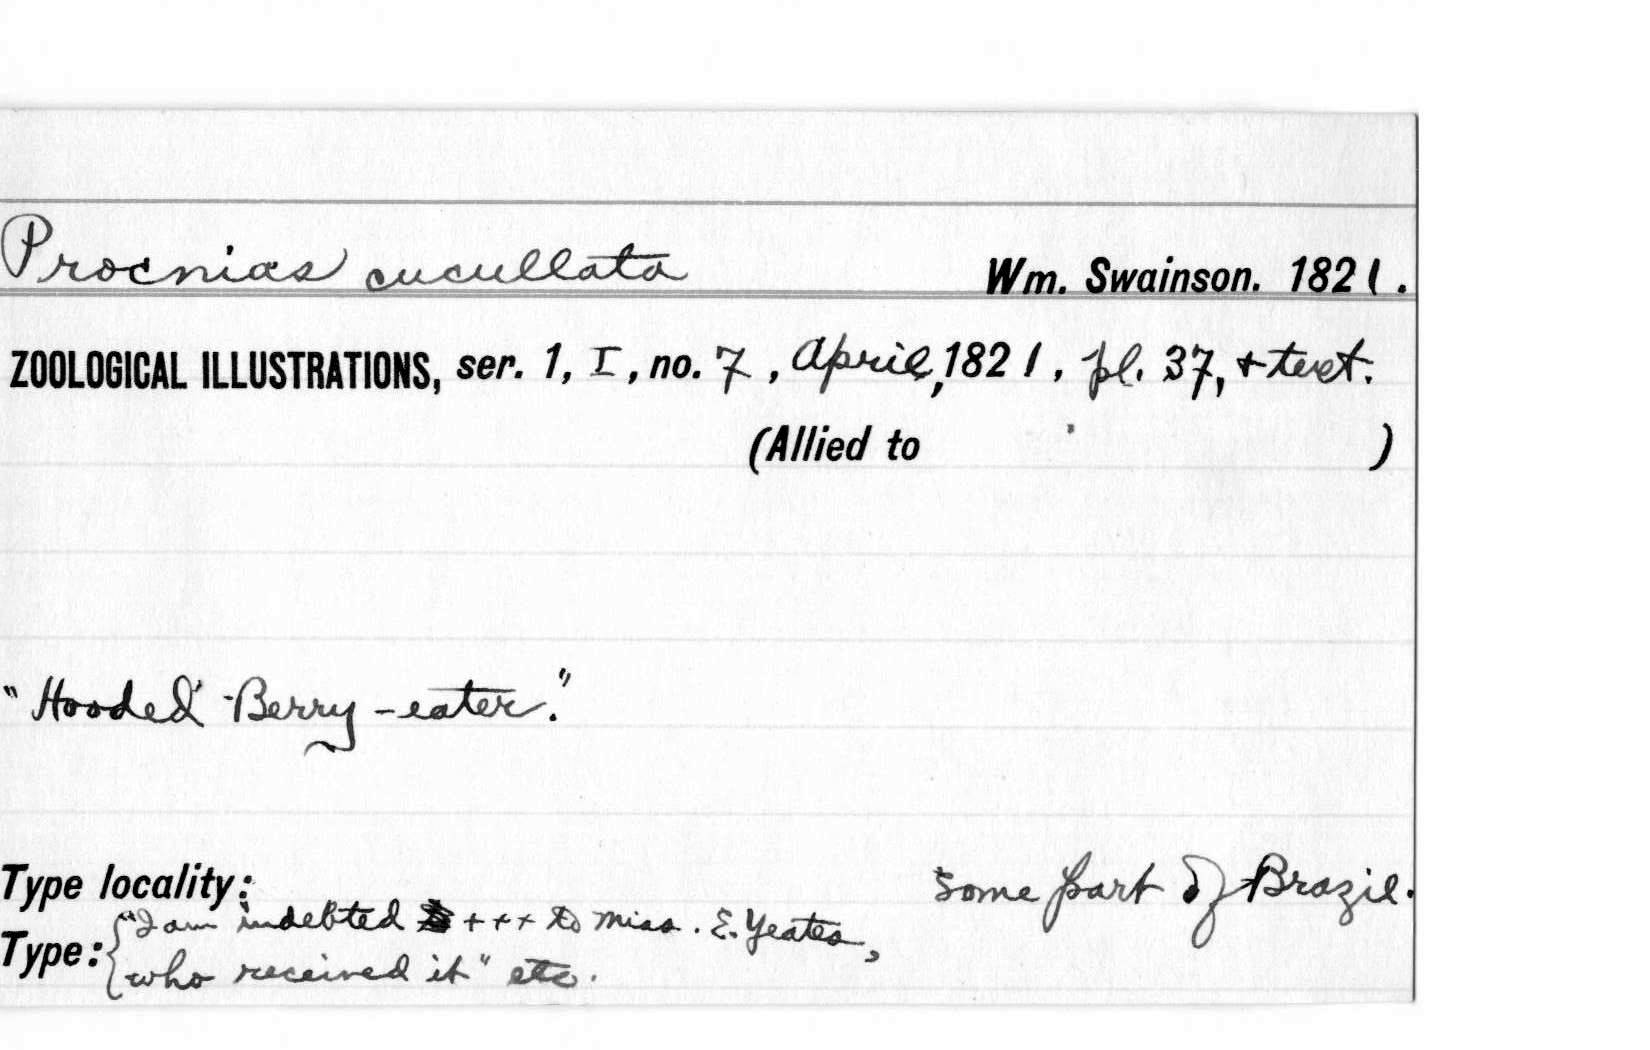 Procnias cucullata Wm. Swainson. 1821.
ZOOLOGICAL ILLUSTRATIONS, ser. 1, I, no. 7, April, 1821, pl. 37, + text.
(Allied to )
"Hooded Berry-eater."
Type locality: Some part of Brazil.
Type: {"I am indebted +++ to Miss. E. Yeates,
who received it" etc.